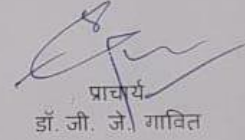 प्राचार्य
डॉ. जी. जे. गावित